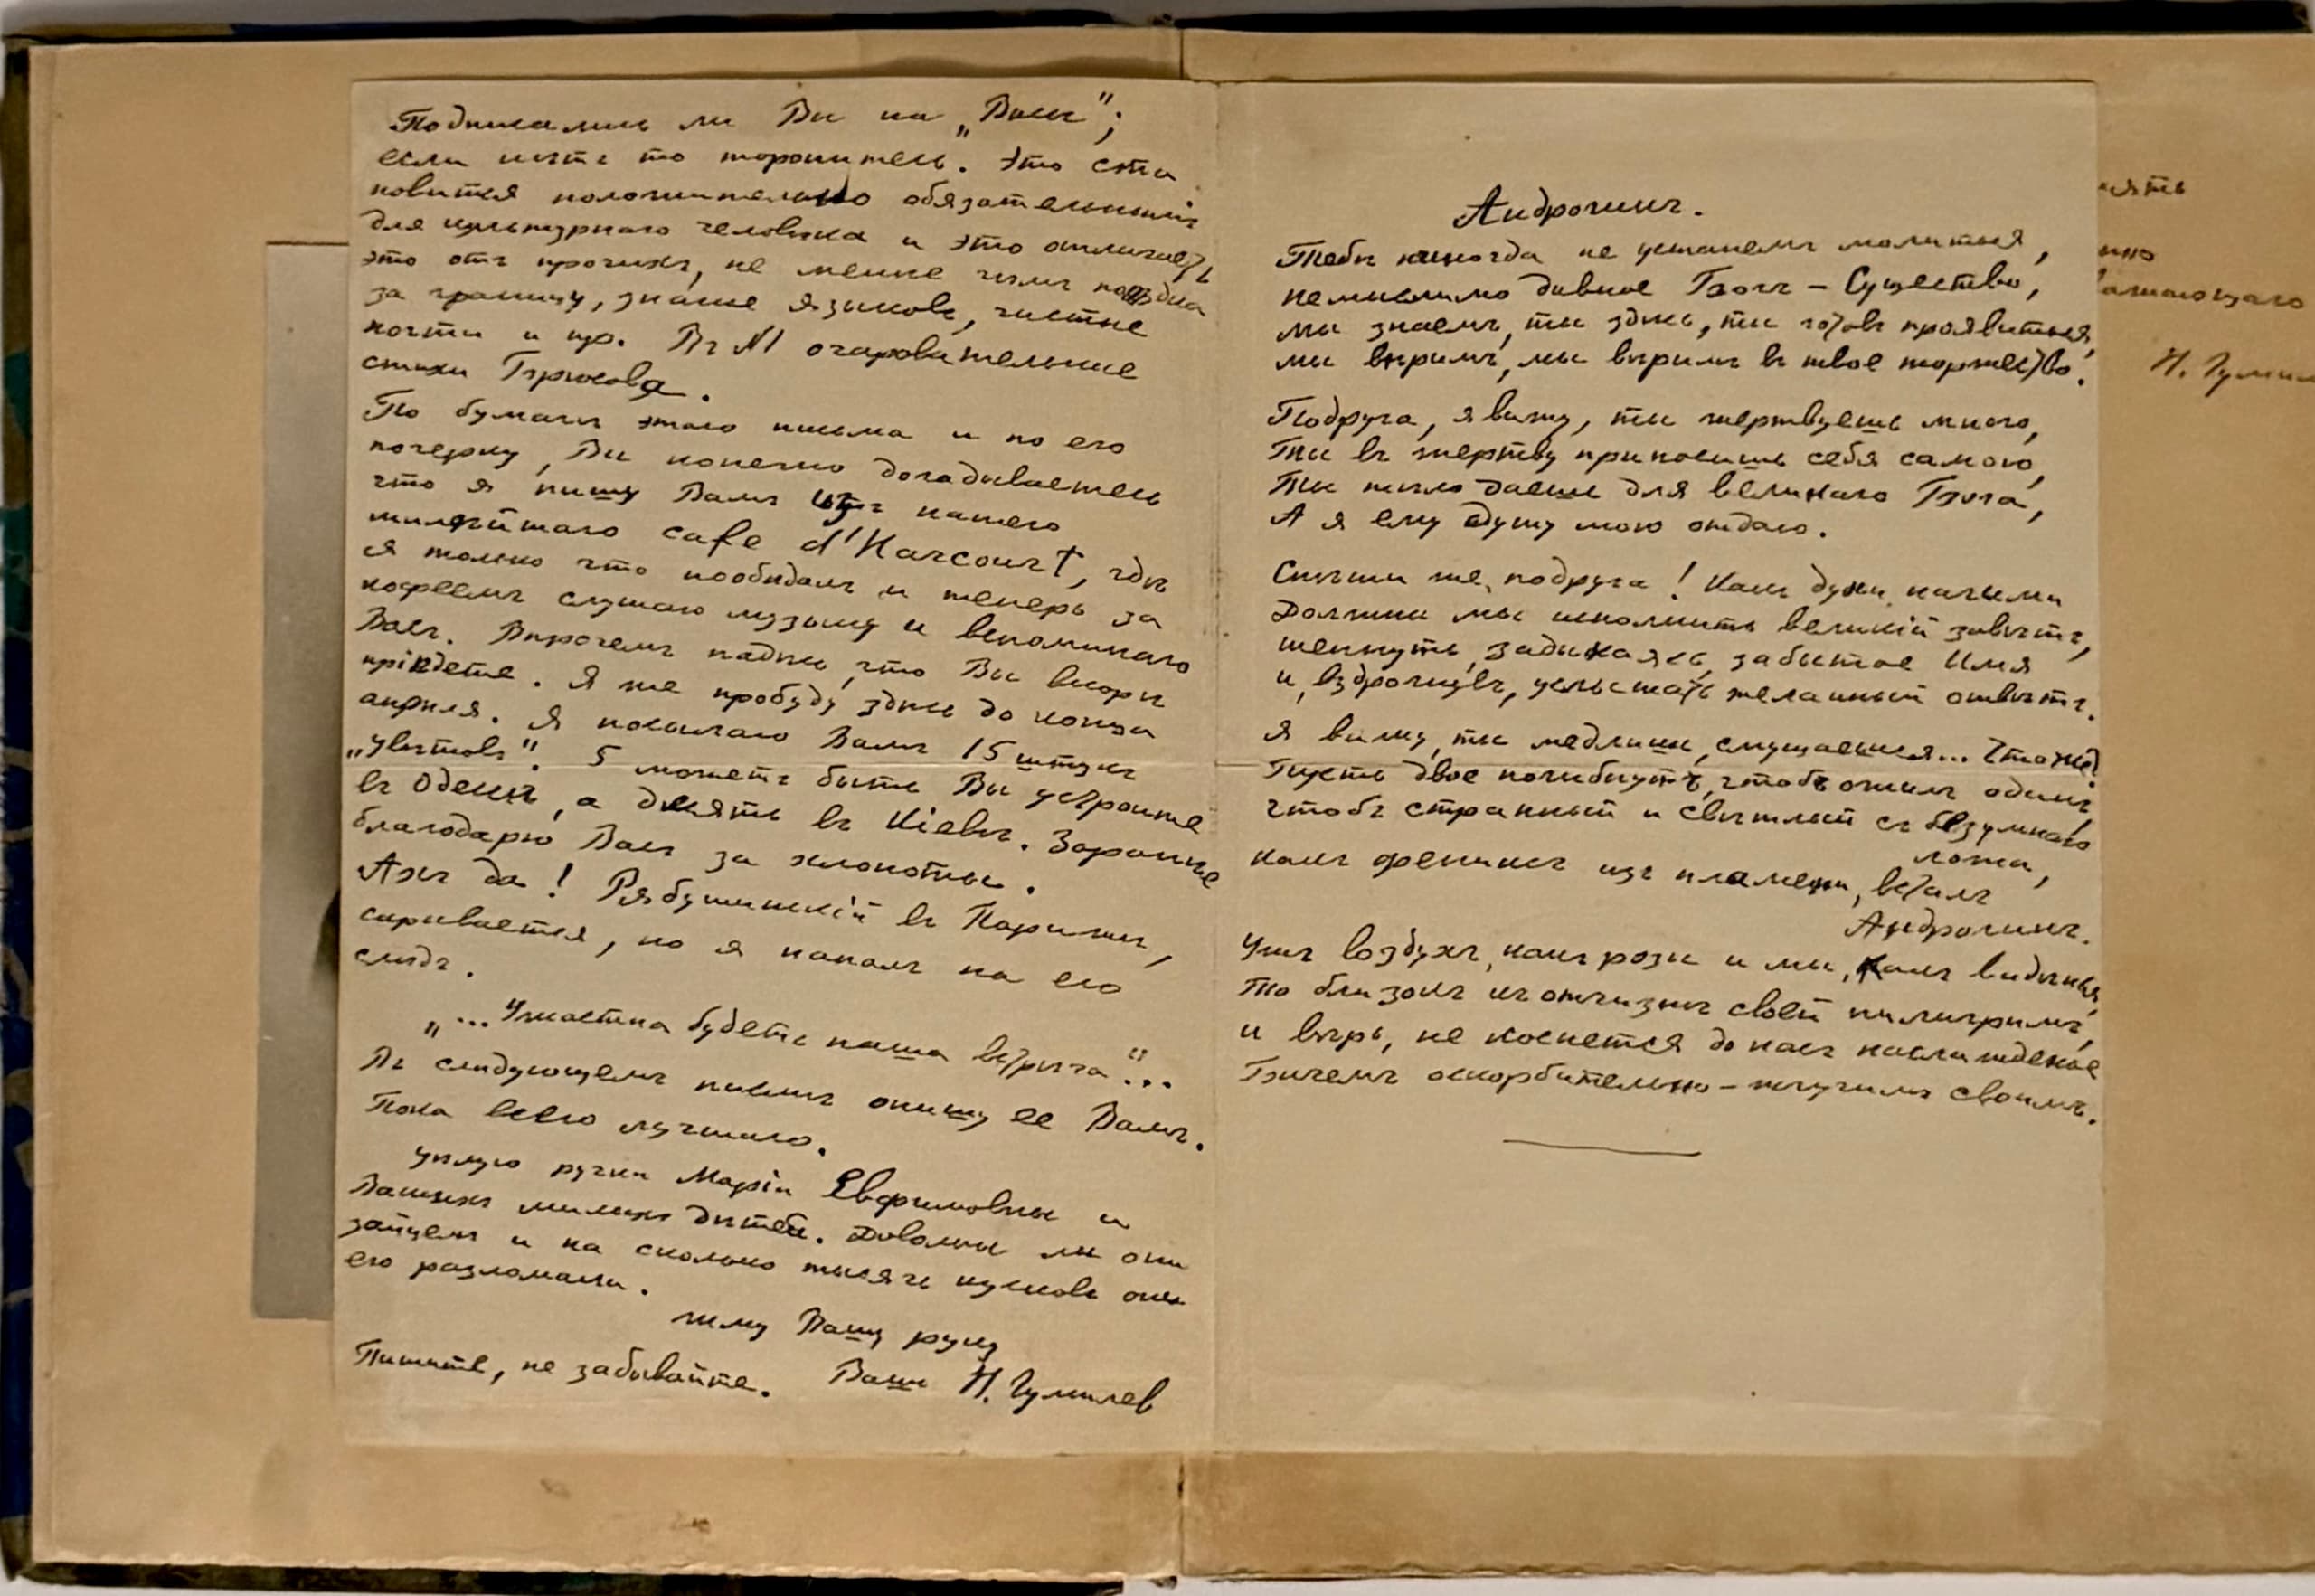 Подписались ли Вы на „Весы";
если нѣтъ то торопитесь. Это ста
новится положительно обязательнымъ
для культурнаго человѣка и это отличаетъ
это отъ прочихъ, не менне чѣмъ поѣздка
за границу, знание языковъ, чистые
ногти и пр. Въ №1 очаровательные
стихи Брюсова.
По бумагѣ этого письма и по его
почерку, Вы конечно догадываетесь
что я пишу Вамъ изъ нашего
милѣйшаго cafe d'Harcourt, гдѣ
я только что пообѣдалъ и теперь за
кофеемъ слушаю музыку и вспоминаю
Васъ. Впрочемъ надѣюсь, что Вы вскорѣ
пріѣдете. Я же пробуду здѣсь до конца
апрѣля. Я посылаю Вамъ 15 штукъ
„Цвѣтовъ". 5 можетъ быть Вы устроите
въ Одессѣ, а десять въ Кіевѣ. Заранѣе
благодарю Васъ за хлопоты.
Ахъ да! Рябушинскій въ Парижѣ,
скрывается, но я напалъ на его
слѣдъ.
„...Ужасна будетъ наша встрѣча"...
Въ слѣдующемъ письмѣ опишу ее Вамъ.
Пока всего лучшаго.
Цѣлую ручки Маріи Евфимовны и
Вашихъ милыхъ дѣтей. Довольны ли они
зайцемъ и на сколько тысячъ кусковъ они
его разломали.
Жму Вашу руку
Пишите, не забывайте. Вашъ Н. Гумилев
Андрогинъ.
Тебѣ никогда не устанемъ молиться,
Немыслимо дивное Богъ – Существо,
Мы знаемъ, ты здѣсь, ты готовъ проявиться,
Мы вѣримъ, мы вѣримъ въ твое торжество.
Подруга, я вижу, ты жертвуешь много,
Ты въ жертву приносишь себя самою,
Ты тѣло даешь для великаго Бога,
А я ему душу мою отдаю.
Спѣши же, подруга! Какъ духи, нагими
Должны мы исполнить великій завѣтъ,
Шепнуть, задыхаясь, забытое Имя
И, вздрогнувъ, услышать желанный отвѣтъ.
Я вижу, ты медлишь, смущаешься... Что же?
Пусть двое погибнутъ, чтобъ ожилъ одинъ,
Чтобъ странный и свѣтлый съ безумнаго
ложа,
Какъ фениксъ изъ пламени, всталъ
Андрогинъ.
Ужъ воздухъ, какъ розы и мы, какъ видѣнья,
То близокъ къ отчизнѣ своей пилигримъ,
И вѣрь, не коснется до насъ наслажденье
Бичемъ оскорбительно – жгучимъ своимъ.